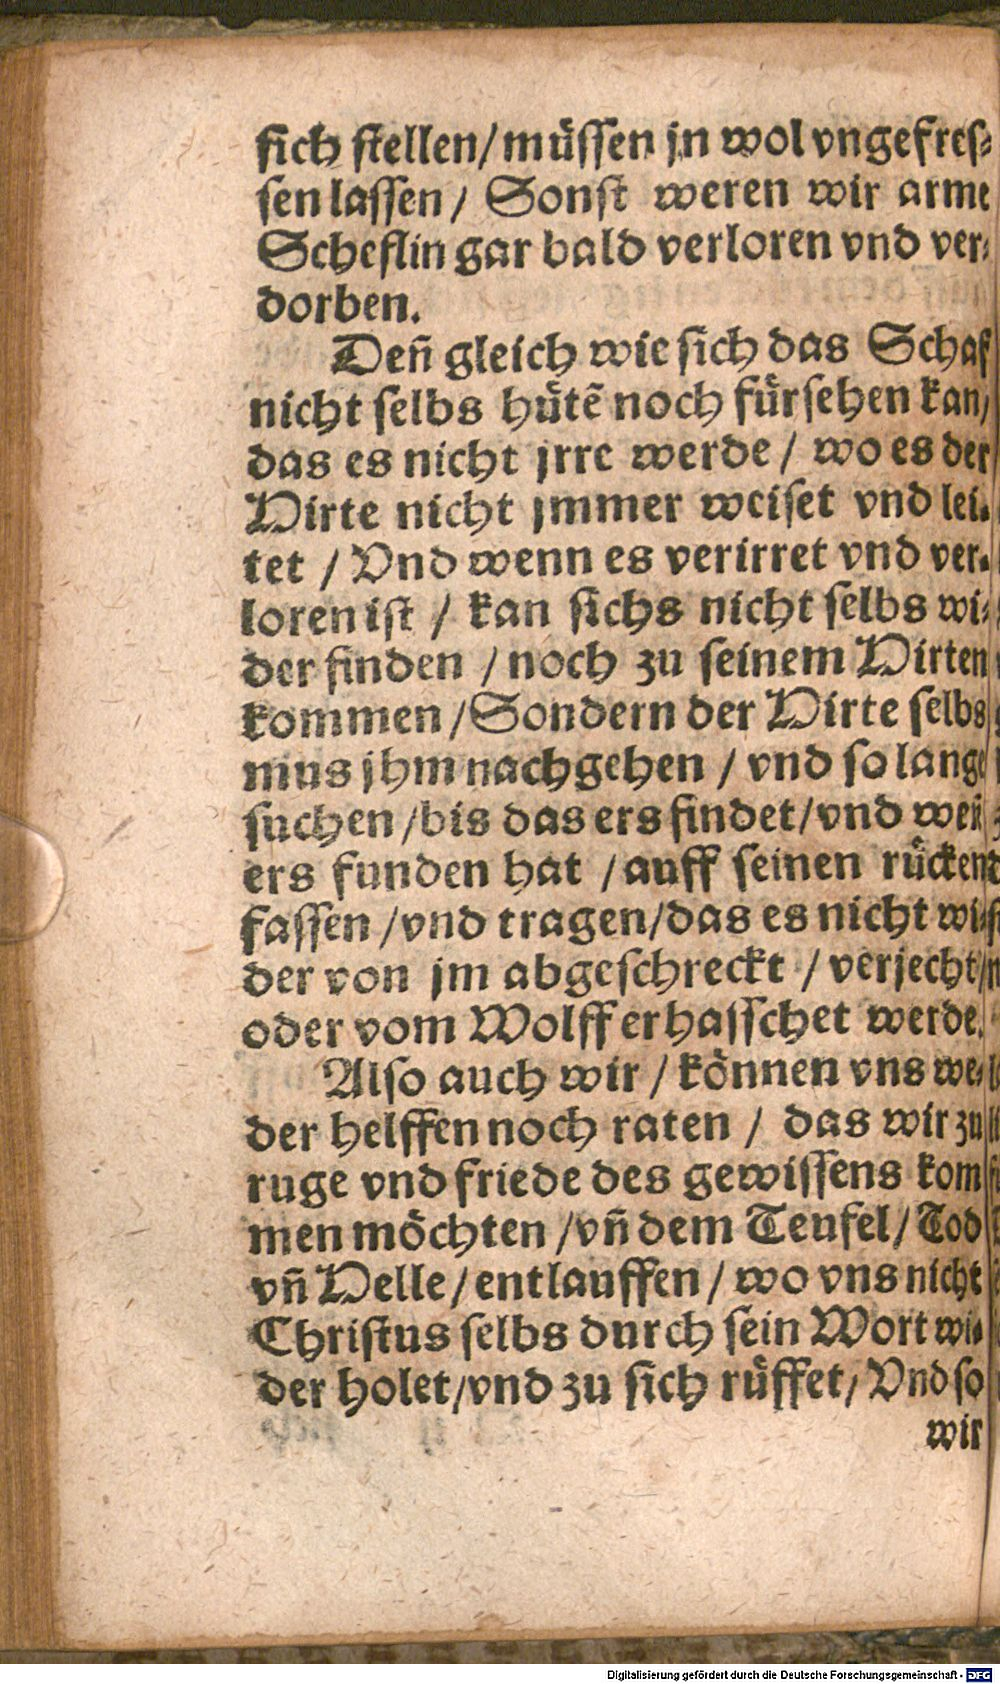 sich stellen / müssen jn wol vngefres⸗
sen lassen / Sonst weren wir arme
Scheflin gar bald verloren vnd ver⸗
dorben.
Deñ gleich wie sich das Schaf
nicht selbs hütẽ noch fürsehen kan /
das es nicht jrre werde / wo es der
Hirte nicht jmmer weiset vnd lei⸗
tet / Vnd wenn es verirret vnd ver⸗
loren ist / kan sichs nicht selbs wi⸗
der finden / noch zu seinem Hirten
kommen / Sondern der Hirte selbs
mus jhm nachgehen / vnd so lange
suchen / bis das ers findet / vnd wen
ers funden hat / auff seinen rücken
fassen / vnd tragen / das es nicht wi⸗
der von jm abgeschreckt / verjecht /
oder vom Wolff erhasschet werde.
Also auch wir / können vns we⸗
der helffen noch raten / das wir zu
ruge vnd friede des gewissens kom
men möchten / vñ dem Teufel / Tod
vñ Helle / entlauffen / wo vns nicht
Christus selbs durch sein Wort wi⸗
der holet / vnd zu sich rüffet / Vnd so
wir
Digitalisierung gefördert durch die Deutsche Forschungsgemeinschaft - DFG